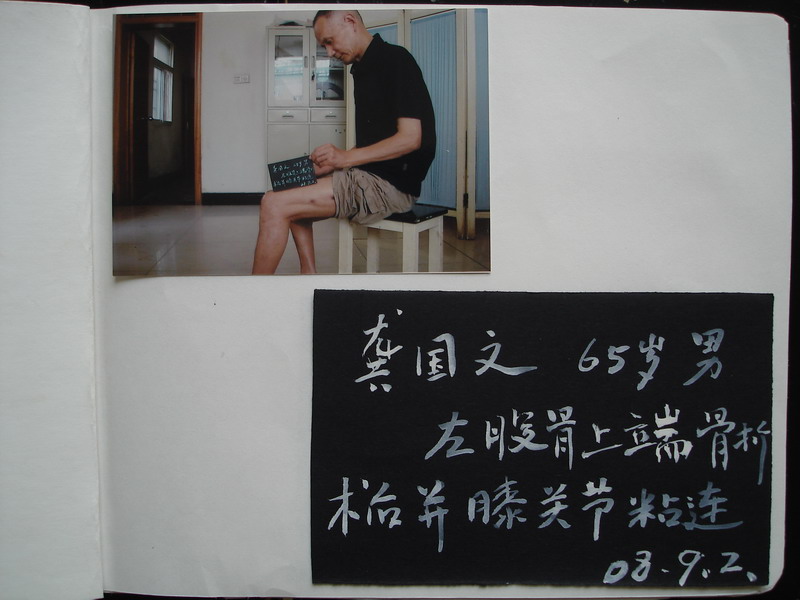 龚国文 65岁 男
左股骨上端骨折
术后并膝关节粘连
08.9.2.